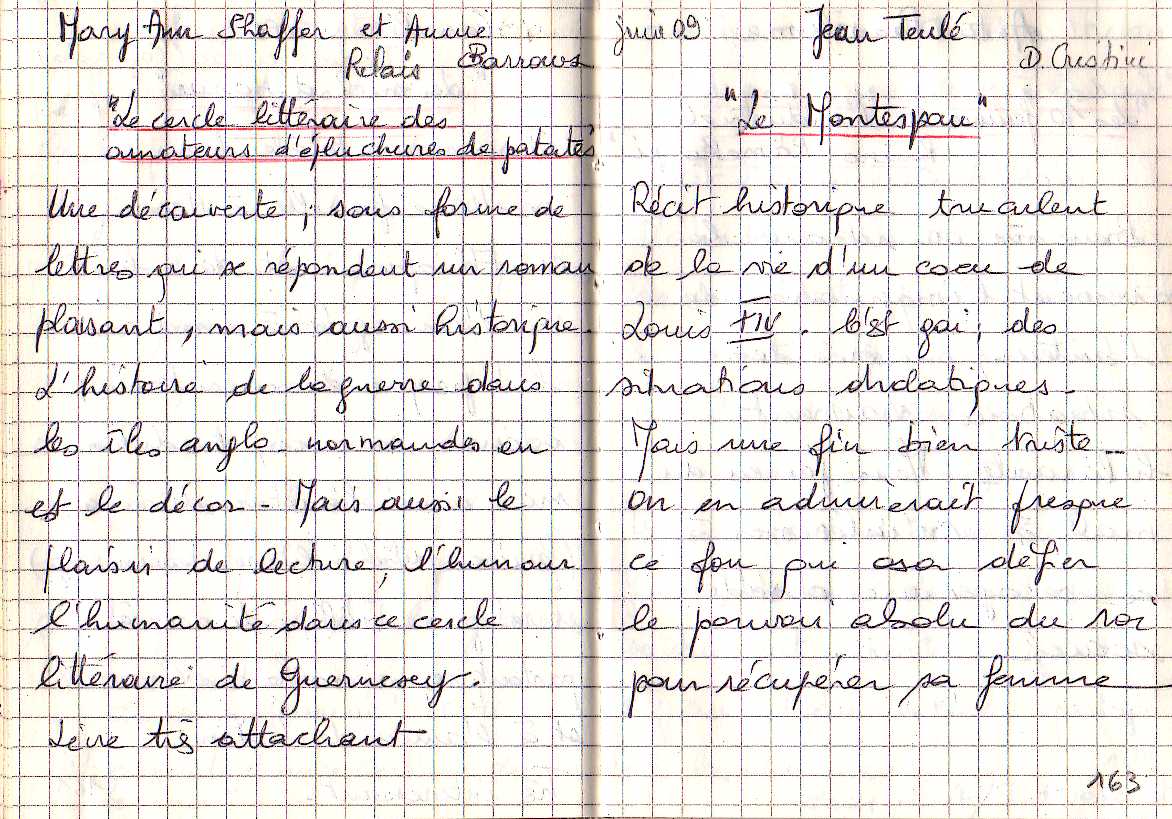 Mary Ann Shaffer et Annie
Relais Barrows
"Le cercle littéraire des
amateurs d'épluchures de patates"
Une découverte ; sous forme de
lettres qui se répondent un roman
plaisant, mais aussi historique.
L'histoire de la guerre dans
les îles anglo-normandes en
est le décor - Mais aussi le
plaisir de lecture, l'humour
l'humanité dans ce cercle
littéraire de Guernesey.
Livre très attachant
juin 09 Jean Teulé
D. Cristini
"Le Montespan"
Récit historique truculent
de la vie d'un cocu de
Louis XIV. C'est gai ; des
situations
Mais une fin bien triste -
On en admirerait presque
ce fou qui osa défier
le pouvoir absolu du roi
pour récupérer sa femme
163